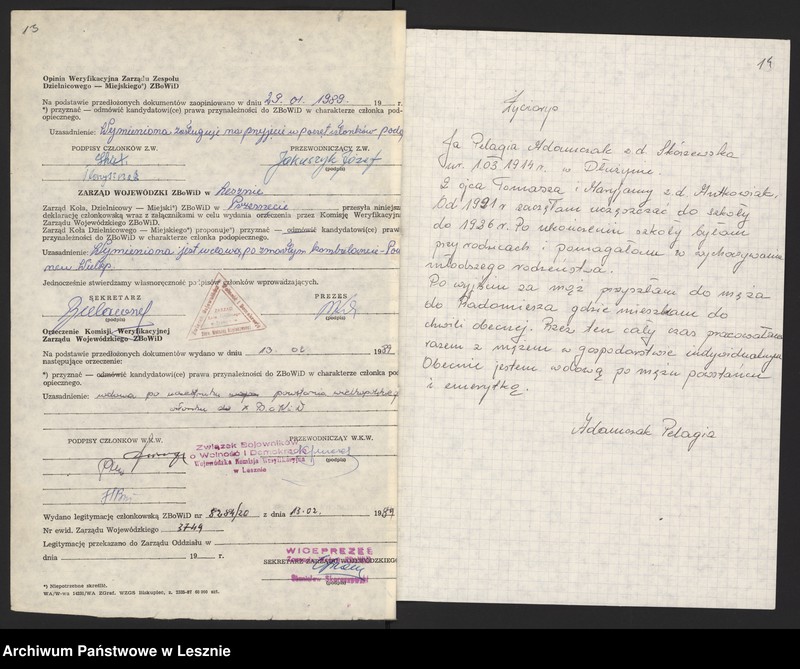 13
Opinia Weryfikacyjna Zarządu Zespołu
Dzielnicowego — Miejskiego*) ZBoWiD
Na podstawie przedłożonych dokumentów zaopiniowano w dniu 23. 01. 1989. 19 r.
*) przyznać — odmówić kandydatowi(ce) prawa przynależności do ZBoWiD w charakterze członka pod-
opiecznego.
Uzasadnienie: Wymieniona zasługuje na przyjęcie w poczet członków podo
PODPISY CZŁONKÓW Z.W.
PRZEWODNICZĄCY Z.W.
Jakuszyk Józef
(podpis)
ZARZĄD WOJEWÓDZKI ZBoWiD w Lesznie
Zarząd Koła, Dzielnicowy — Miejski*) ZBoWiD w przesyła niniejs
deklarację członkowską wraz z załącznikami w celu wydania orzeczenia przez Komisję Weryfikacyjn
Zarządu Wojewódzkiego ZBoWiD.
Zarząd Koła Dzielnicowego — Miejskiego*) proponuje*) przyznać — odmówić kandydatowi(ce) praw
przynależności do ZBoWiD w charakterze członka podopiecznego.
Uzasadnienie: Wymieniona jest wdową po zmarłym kombatancie - Pow
Jednocześnie stwierdzamy własnoręczność podpisów członków wprowadzających.
SEKRETARZ
PREZES
(podpis)
(podpis)
Orzeczenie Komisji Weryfikacyjnej
Zarządu Wojewódzkiego ZBoWiD
Na podstawie przedłożonych dokumentów wydano w dniu 13. 02. 1989
następujące orzeczenie:
*) przyznać — odmówić kandydatowi(ce) prawa przynależności do ZBoWiD w charakterze członka pod
opiecznego.
Uzasadnienie: wdowa po uczestniku powstania wielkopolskieg
członku ZBoWiD
PODPISY CZŁONKÓW W.K.W.
PRZEWODNICZĄCY W.K.W.
(podpis)
Związek Bojowników
o Wolność i Demokrację
Wojewódzka Komisja Weryfikacyjna
w Lesznie
Wydano legitymację członkowską ZBoWiD nr 8284/20 z dnia 13. 02. 1989
Nr ewid. Zarządu Wojewódzkiego 3749
Legitymację przekazano do Zarządu Oddziału w
dnia 19 r.
WICEPREZES
SEKRETARZ ZARZĄDU WOJEWÓDZKIEGO
(podpis)
*) Niepotrzebne skreślić.
14
Życiorys
Ja Pelagia Adamczak z d. Skórzewska
ur. 1 03 1914 r. w Dłużynie.
Z ojca Tomasza i Maryjanny z d. Antkowiak.
Od 1921 zaczęłam uczęszczać do szkoły
do 1926 r. Po ukończeniu szkoły byłam
przy rodzicach i pomagałam w wychowywaniu
młodszego rodzeństwa.
Po wyjściu za mąż przyszłam do męża
do Radomierza gdzie mieszkam do
chwili obecnej. Przez ten cały czas pracowałam
razem z mężem w gospodarstwie indywidualnym
Obecnie jestem wdową po mężu powstańcu
i emerytką.
Adamczak Pelagia
Archiwum Państwowe w Lesznie